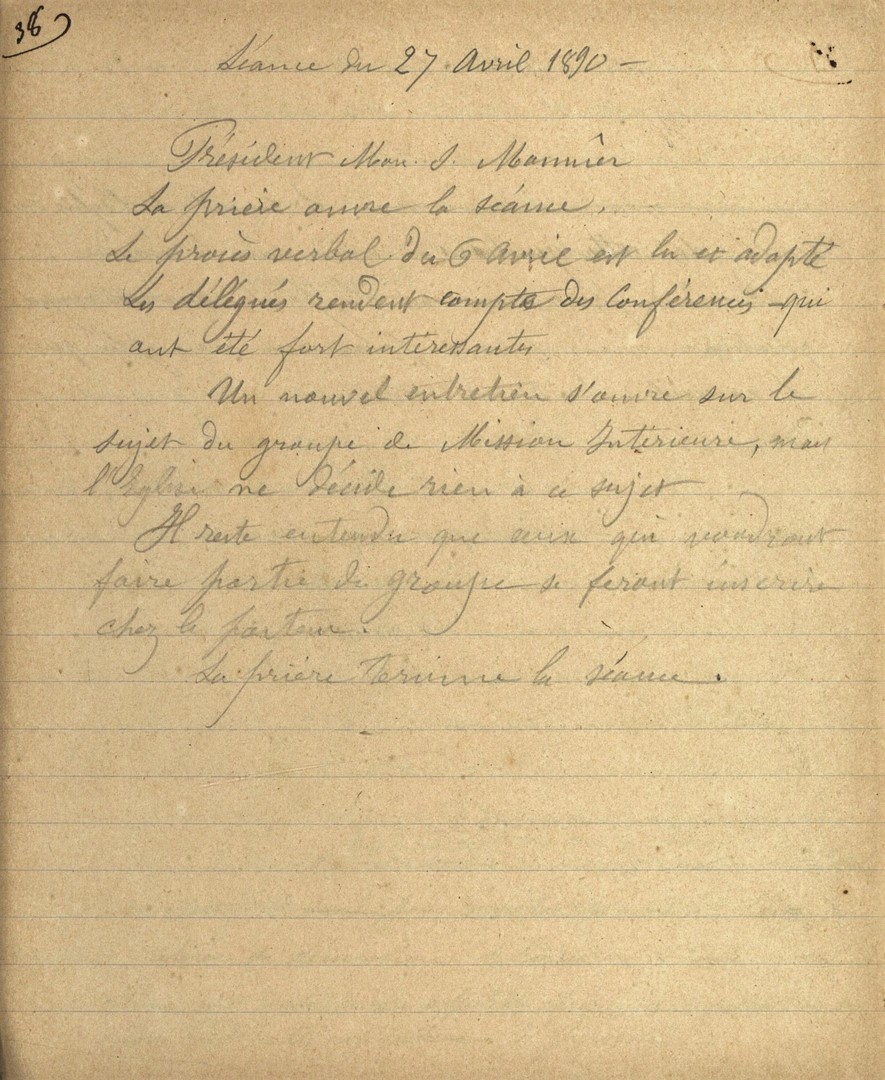 38
Séance du 27 Avril 1890 —
Président Mon. S. Monnier
La prière ouvre la séance.
Le procès verbal du 6 Avril est lu et adopté
Les délégués rendent compte des Conférences qui
ont été fort intéressantes
Un nouvel entretien s'ouvre sur le
sujet du groupe de Mission Intérieure, mais
l'Eglise ne décide rien à ce sujet
Il reste entendu que ceux qui voudront
faire partie du groupe se feront inscrire
chez le pasteur.
La prière termine la séance.